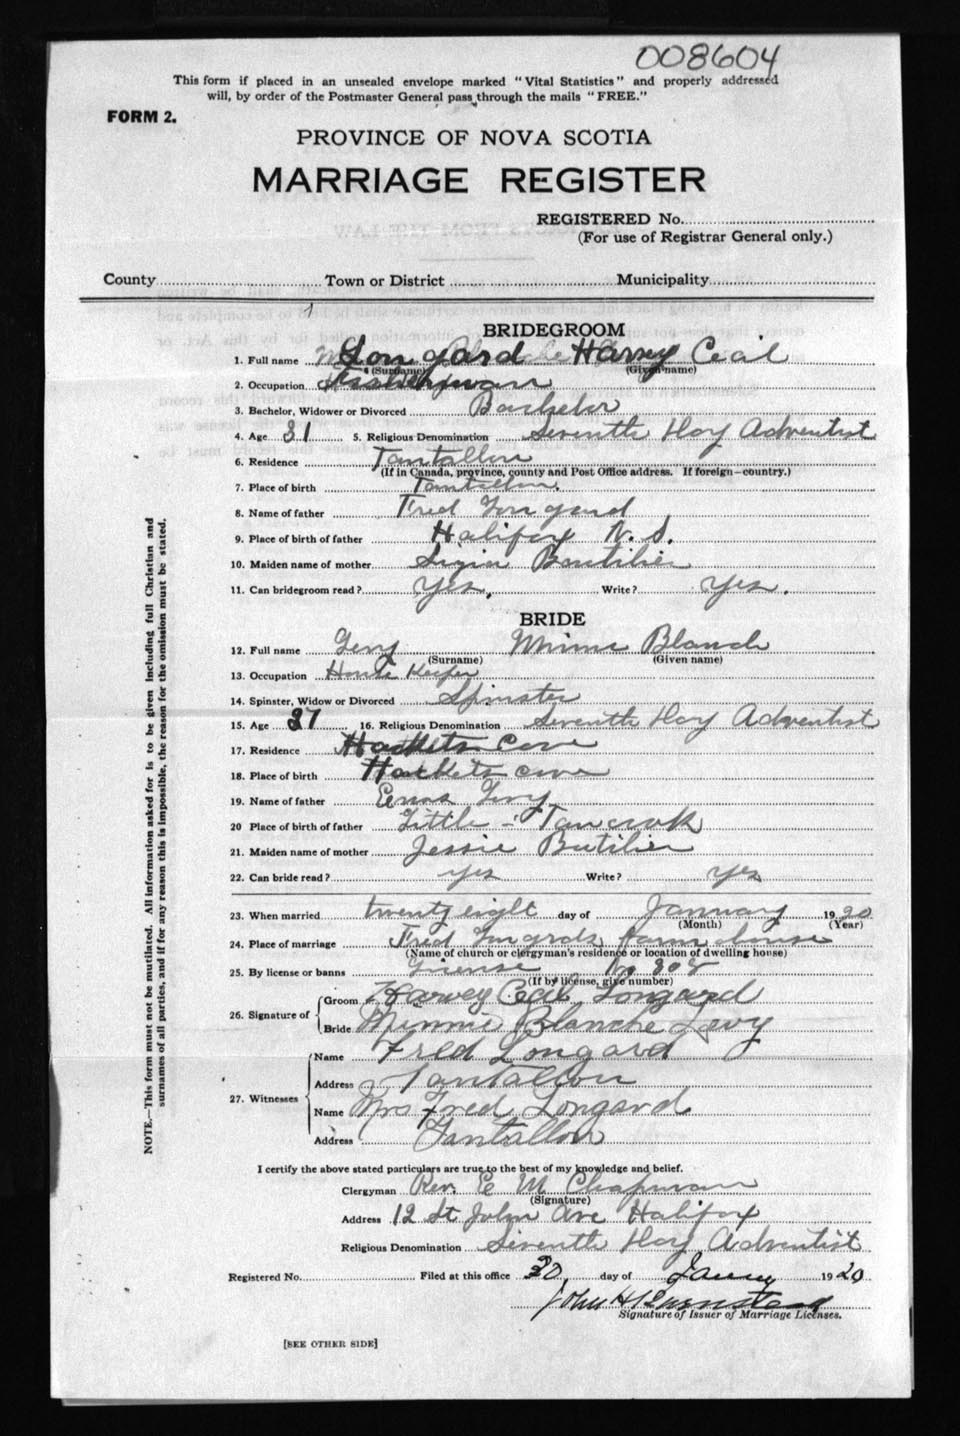 008604
This form if placed in an unsealed envelope marked "Vital Statistics" and properly addressed
will, by order of the Postmaster General pass through the mails "FREE."
FORM 2.
PROVINCE OF NOVA SCOTIA
MARRIAGE REGISTER
REGISTERED No.
(For use of Registrar General only.)
County Town or District Municipality
BRIDEGROOM
1. Full name Longard Harvey Cecil
(Surname) (Given name)
2. Occupation Fisherman
3. Bachelor, Widower or Divorced Bachelor
4. Age 31 5. Religious Denomination Seventh Day Adventist
6. Residence Tantallon
(If in Canada, province, county and Post Office address. If foreign—country.)
7. Place of birth Tantallon.
8. Name of father Fred Longard
9. Place of birth of father Halifax N. S.
10. Maiden name of mother Boutilier
11. Can bridegroom read? Yes. Write? Yes.
BRIDE
12. Full name Levy Minnie Blanch
(Surname) (Given name)
13. Occupation House Keeper
14. Spinster, Widow or Divorced Spinster
15. Age 27 16. Religious Denomination Seventh Day Adventist
17. Residence Hackets Cove
18. Place of birth Hackets cove
19. Name of father Levy
20 Place of birth of father Little - Tancook
21. Maiden name of mother Jessie Butilier
22. Can bride read? yes Write? yes
23. When married twenty eight day of January 1920
(Month) (Year)
24. Place of marriage Fred Longards farm house
(Name of church or clergyman's residence or location of dwelling house)
25. By license or banns License No
(If by license, give number)
26. Signature of Groom Harvey Cecil Longard
Bride Minnie Blanche Levy
27. Witnesses Name Fred Longard
Address Tantallon
Name Mrs Fred Longard
Address Tantallon
I certify the above stated particulars are true to the best of my knowledge and belief.
Clergyman Rev. E M Chapman
(Signature)
Address 12 St John Ave Halifax
Religious Denomination Seventh Day Adventist
Registered No. Filed at this office 30 day of Janny 1920
John H
Signature of Issuer of Marriage Licenses.
[SEE OTHER SIDE]
NOTE.—This form must not be mutilated. All information asked for is to be given including full Christian and
surnames of all parties, and if for any reason this is impossible, the reason for the omission must be stated.